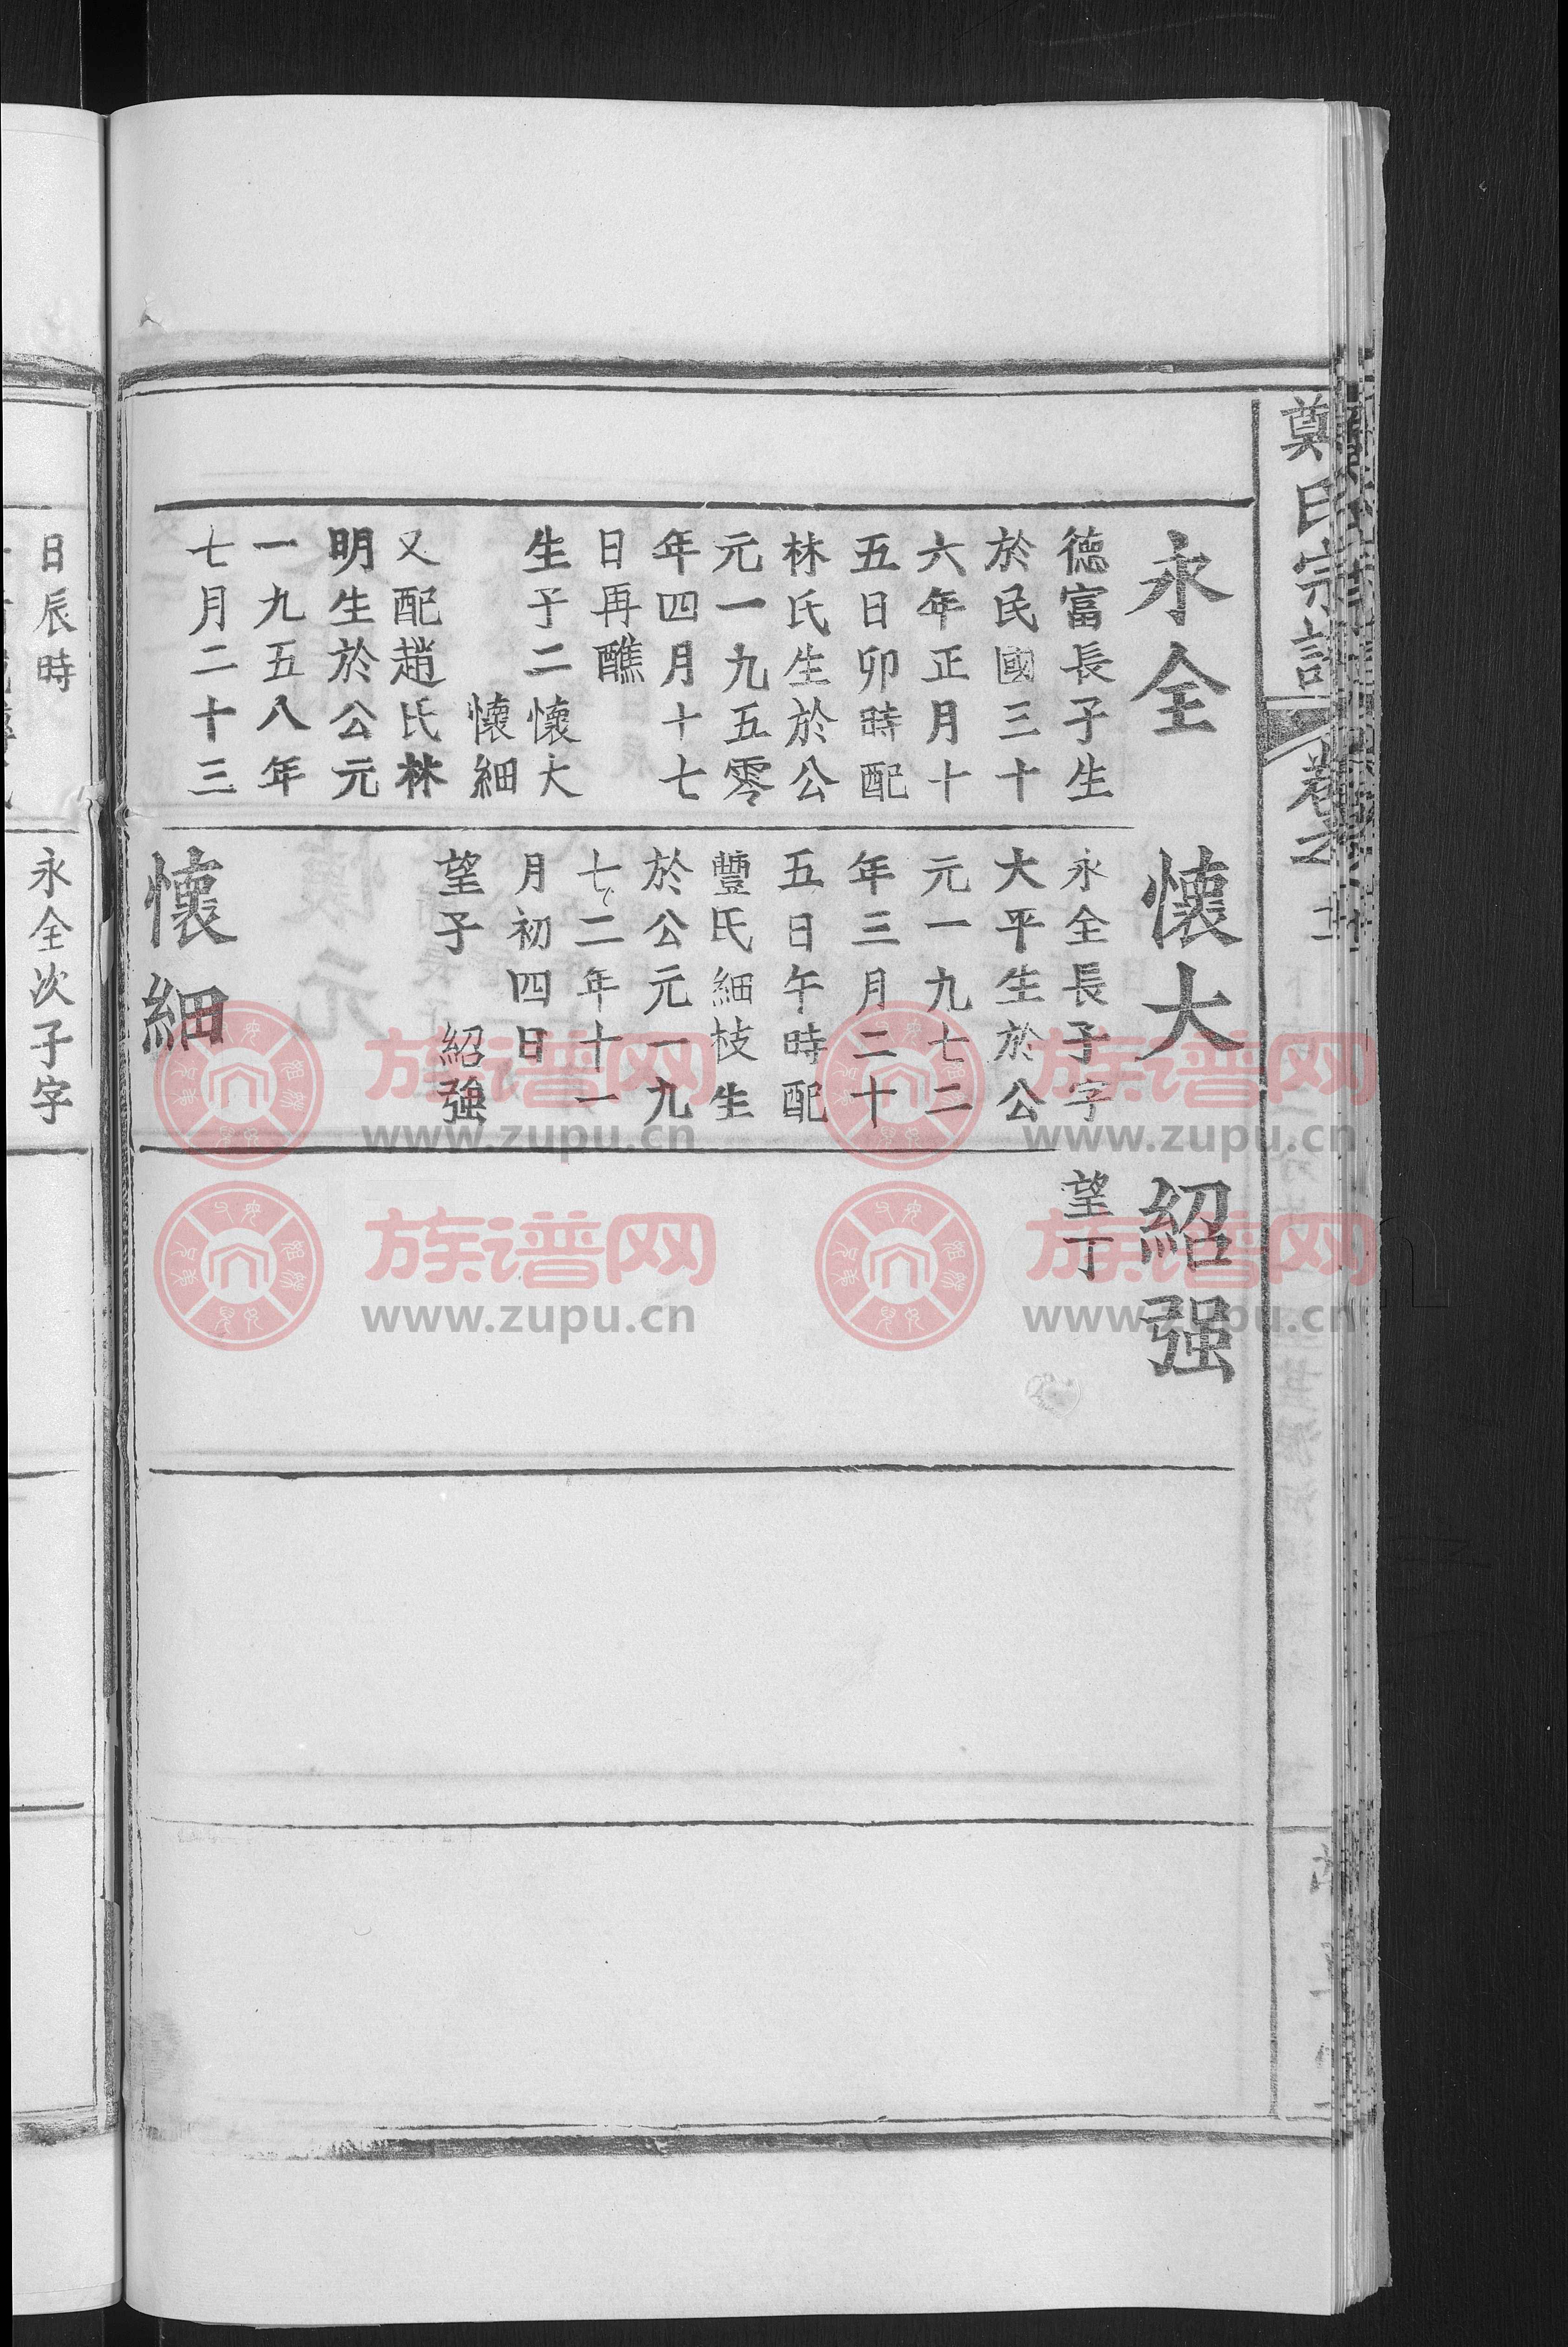 鄭氏宗譜
永全
德富長子生
於民國三十
六年正月十
五日卯時配
林氏生於公
元一九五零
年四月十七
日再醮
生子二懷大
懷細
又配趙氏林
明生於公元
一九五八年
七月二十三
懷大
永全長子字
大平生於公
元一九七二
年三月二十
五日午時配
豐氏細枝生
於公元一九
七二年十一
月初四日
望子 紹強
懷細
紹强
望丁
日辰時
永全次子字
族谱网
www.zupu.cn
族谱网
www.zupu.cn
族谱网
www.zupu.cn
族谱网
www.zupu.cn